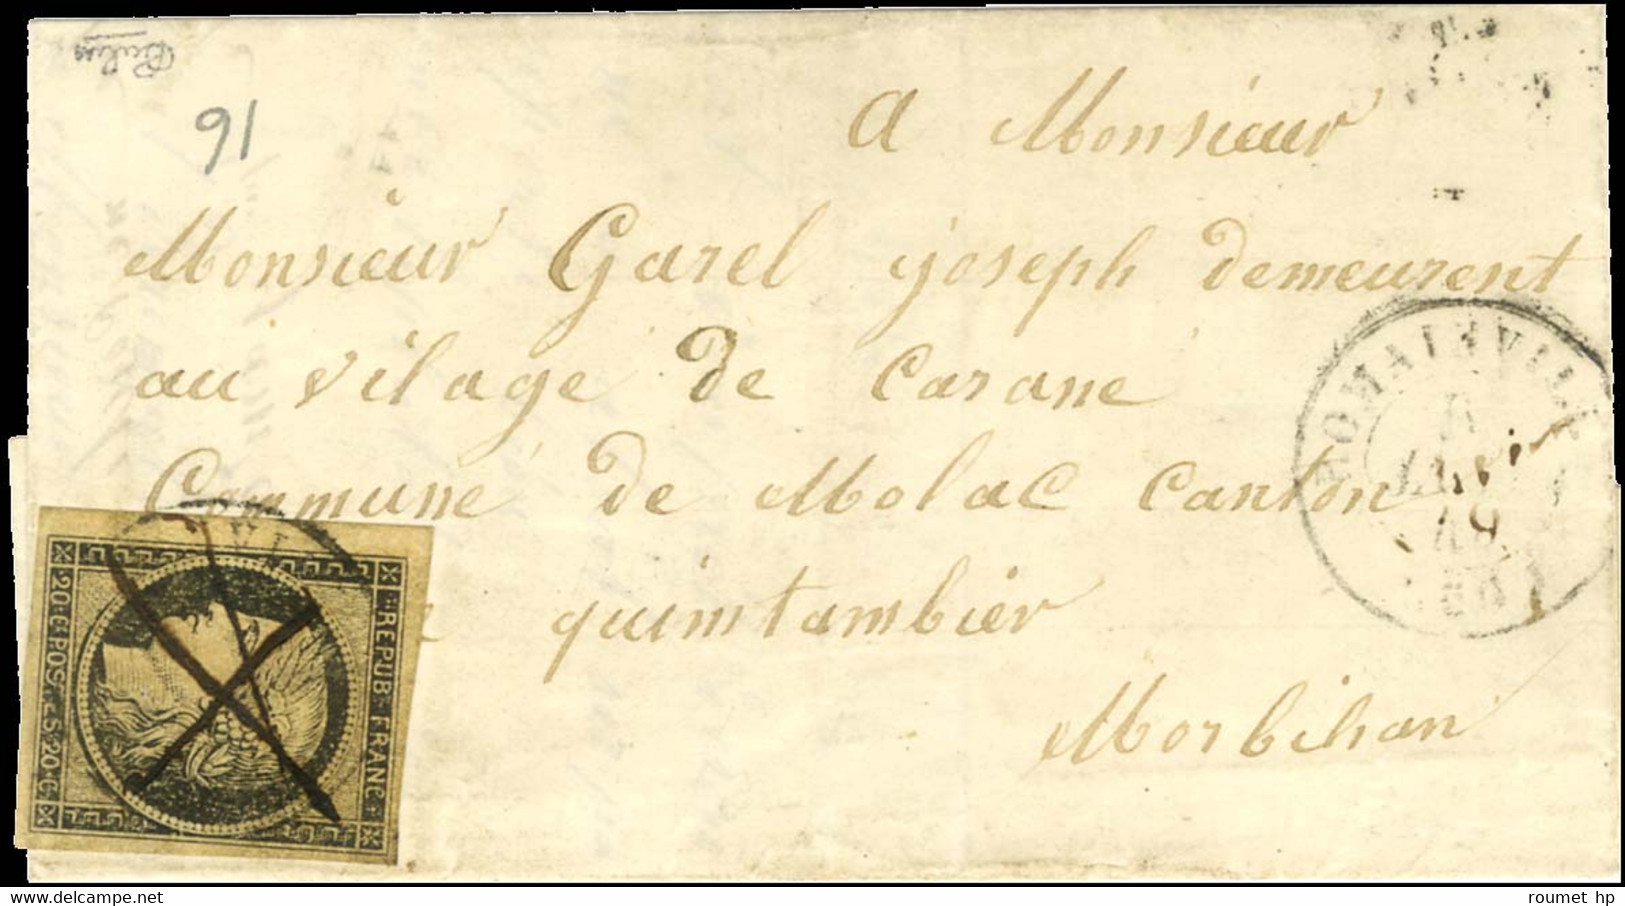 16
a Monsieur
Monsieur Garel joseph demeurent
au vilage de Carane
Commune de Molac canton
quimtambier
Morbihan
ROMAINVILLE
49
REPUB. FRANC.
20.C. POSTES 20.C.
roumet hp